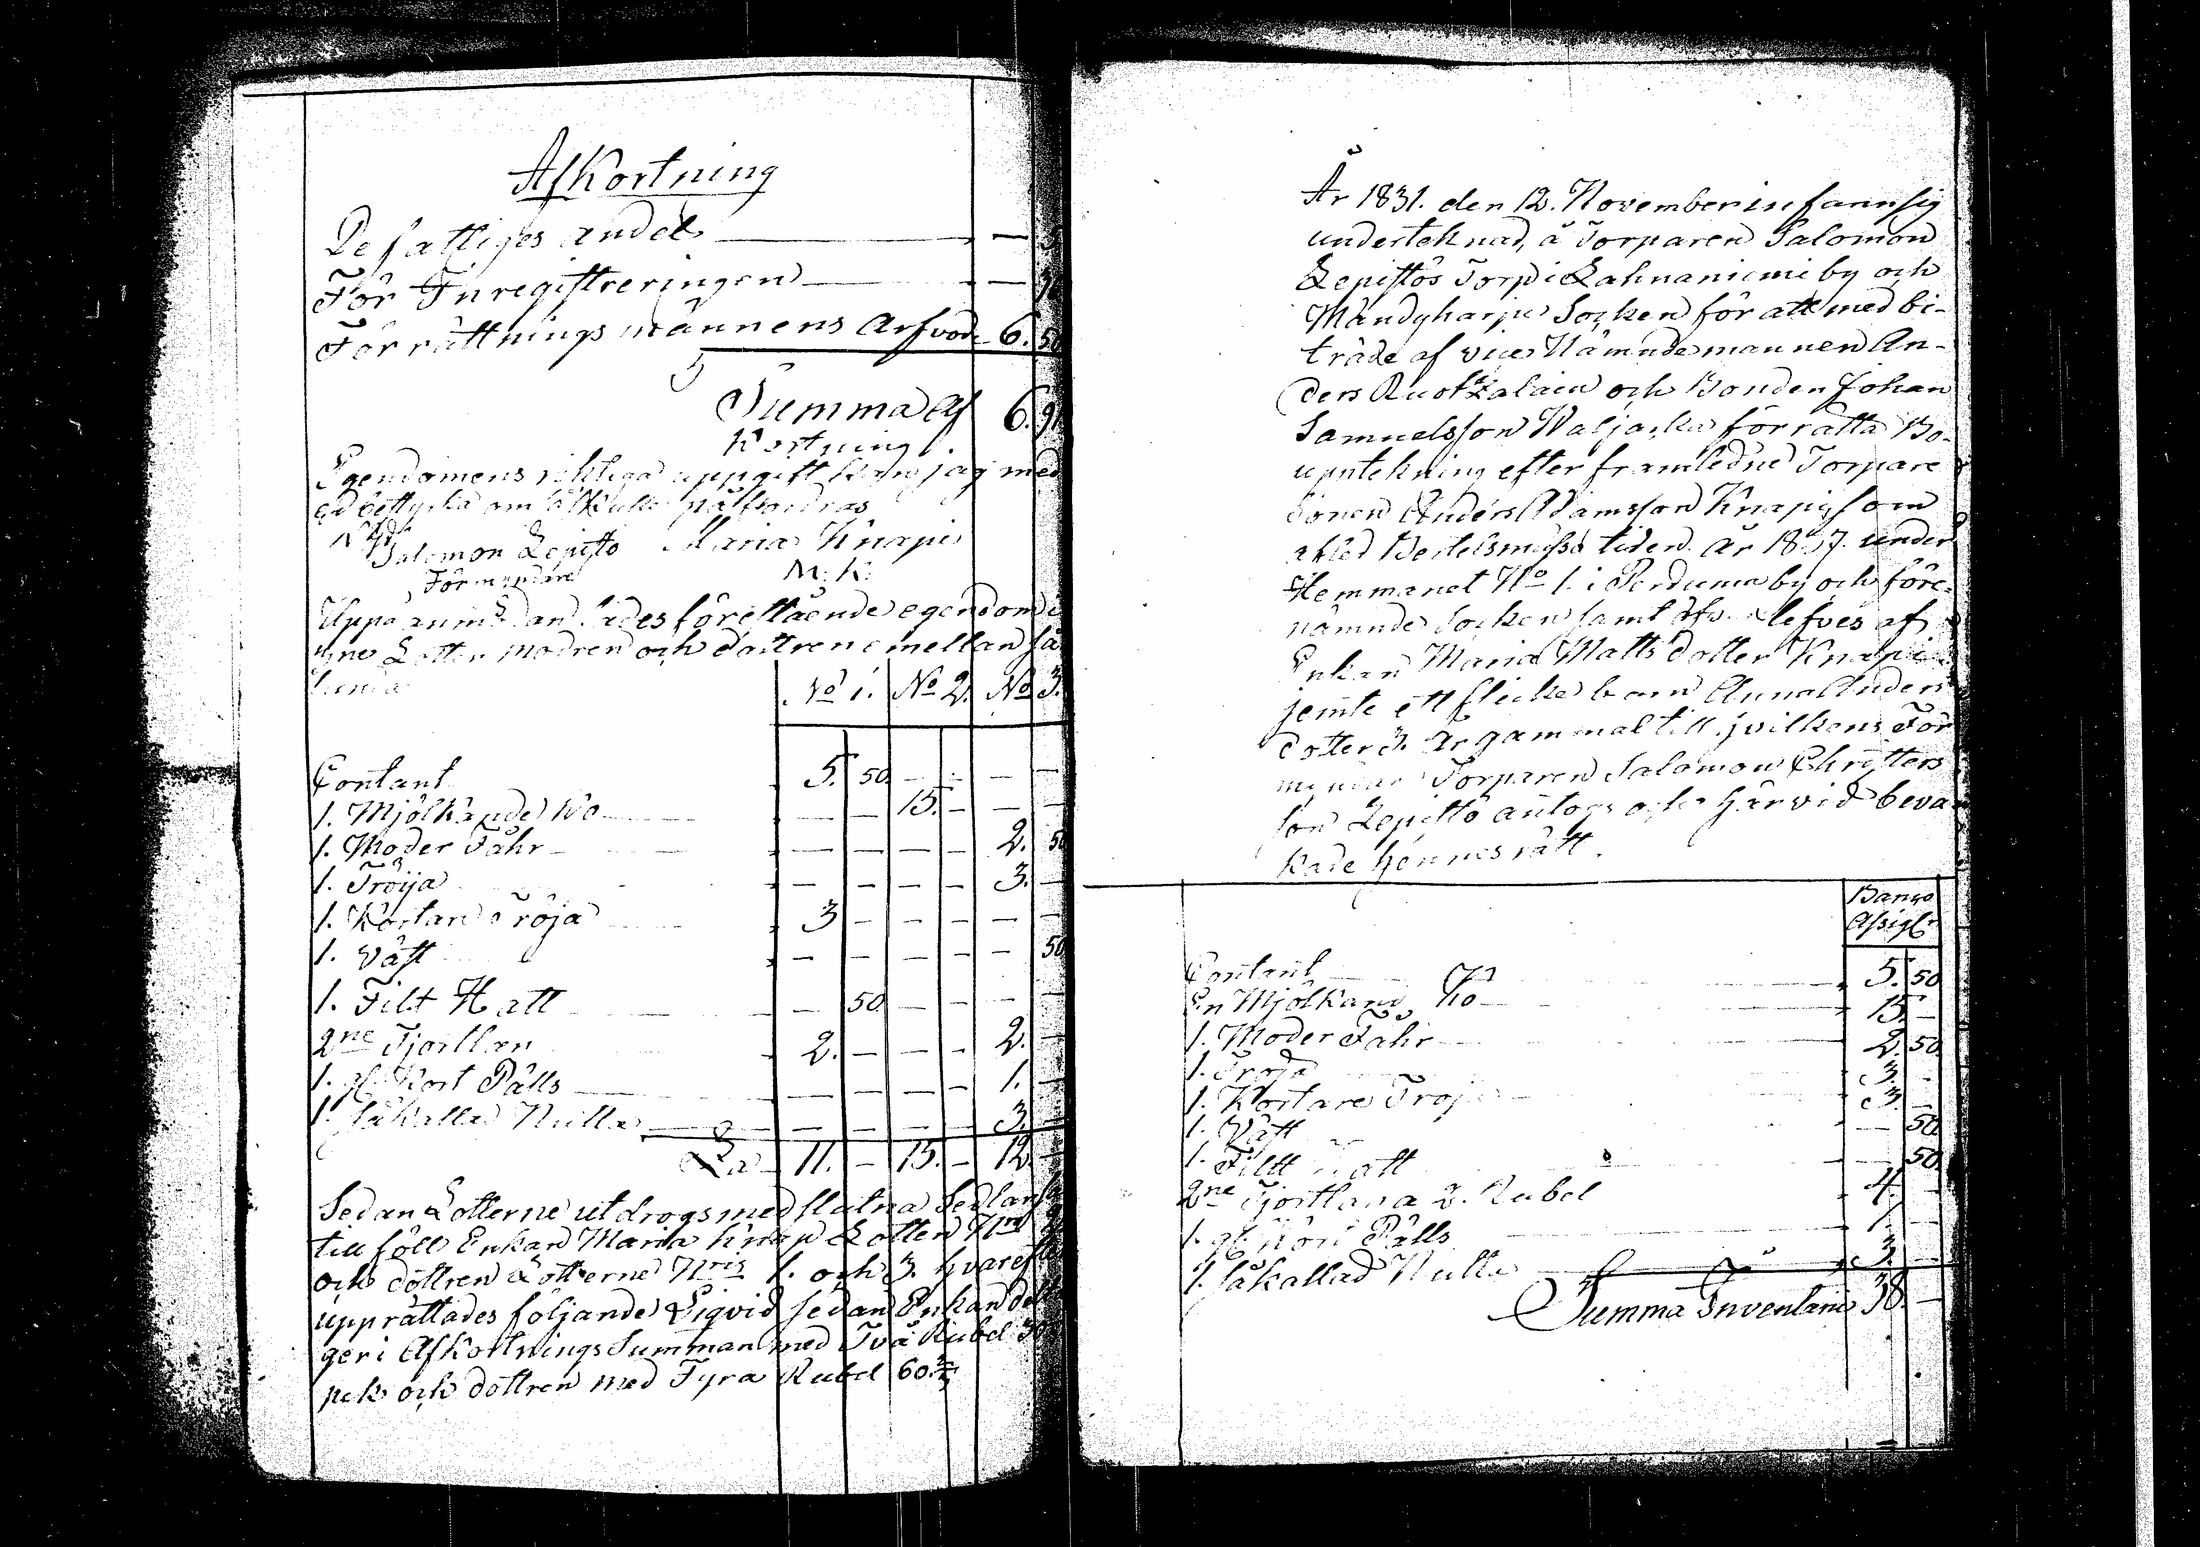 Afkortning
De fattiges andel — —
För Inregistreringen — —
Förrättnings männens Arfvode 6. 50
Summa Af 6. 91
kortning
Egendomens riktiga uppgift kan jag med
ed bestyrka om så påfordras
Salomon Lepistö Maria Knapi
Förmyndare M. K.
Uppå anmälan lades förestående egendom i
Lotter modren och dottren emellan så
No 1. No 2. No 3.
Contant 5. 50 — — — —
1. Mjölkande Ko — — 15. — — —
1. Moder Fåhr — — — — 2. 50
1. Tröija — — — — 3. —
1. Kortare Tröja 3 — — — — —
1. Väst — — — — — 50
1. Filt Hatt — 50 — — — —
2ne Tjortlar 2. — — — 2. —
1. gl. Kort Pälls — — — — 1. —
1. Såkallad Nulla — — — — 3. —
11. — 15. — 12 —
Sedan Lotterne utdrogs med slutna Sedlar
tillföll Enkan Maria Knapi Lotten Nro
och dottren Lotterne Nris 1. och 3. hvarefter
upprättades följande Liqvid sedan Enkan del
ger i Afkortnings Summan med Två Rubel 30
pek och dottren med Fyra Rubel 60
År 1831. den 12. November infann sig
underteknad, å Torparen Salomon
Lepistös Torp i Lahnaniemi by och
Mändyharju Socken för att med bi-
träde af vice Nämndemannen An-
ders Ruotzalain och Bonden Johan
Samuelsson Waljacka förrätta Bo-
uppteckning efter framledne Torpare
Sonen Anders Adamsson Knapi som
afled Bertelsmässo tiden år 18 7. under
Hemmanet No 1. i Pertuma by och före-
nämnde Socken samt efterlefves af
Enkan Maria Matts dotter Knapi
jemte ett flicke barn Anna Anders
dotter 3. År gammal till hvilkens För
myndare Torparen Salomon Christers
son Lepistö antogs och härvid beva
kade hennes rätt.
Banco
Assigt
Contant 5. 50
En Mjölkand Ko 15. —
1. Moder Fåhr 2. 50
1. Tröja 3. —
1. Kortare Tröja 3. —
1. Väst — 50
1. Filtt Hatt — 50
2ne Tjortlar a 2. Rubel 4. —
1. gl. Kort Pälls 1. —
1. Såkallad Nulla 3. —
Summa Inventarie 38. —